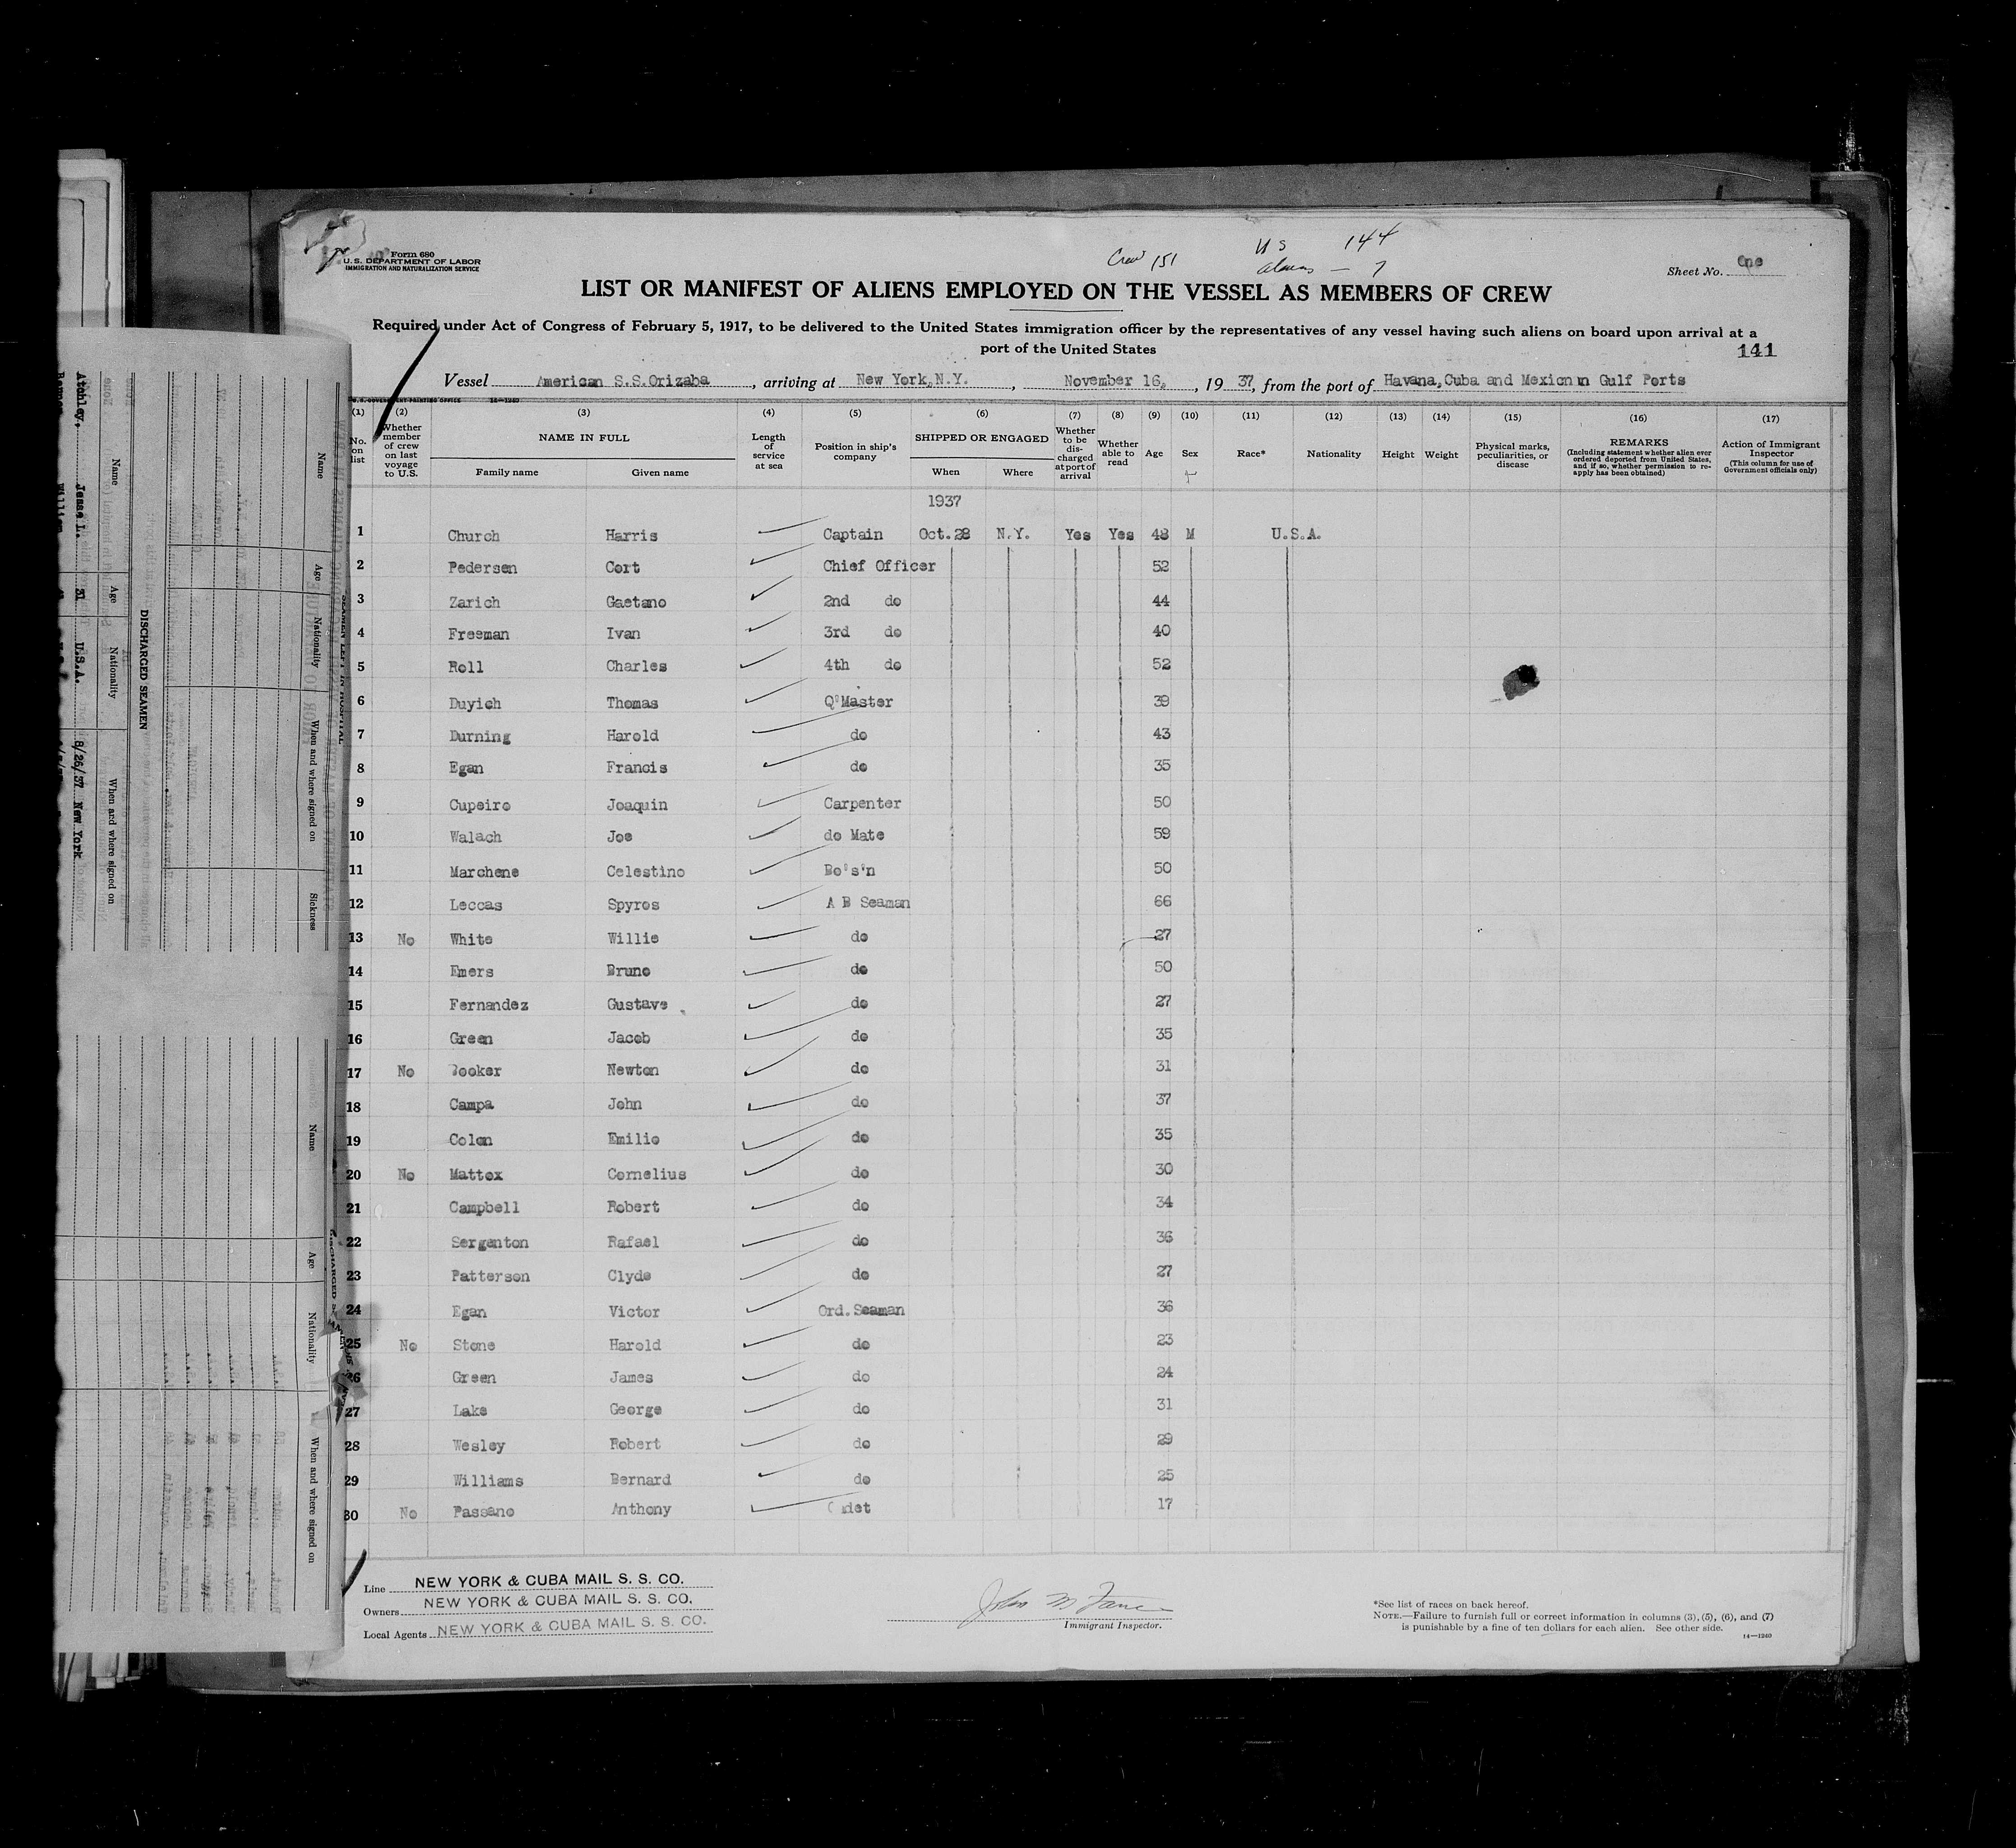 Form 680
U.S. DEPARTMENT OF LABOR
IMMIGRATION AND NATURALIZATION SERVICE
Crew 151
US 144
aliens — 7
Sheet No. One
LIST OR MANIFEST OF ALIENS EMPLOYED ON THE VESSEL AS MEMBERS OF CREW
Required under Act of Congress of February 5, 1917, to be delivered to the United States immigration officer by the representatives of any vessel having such aliens on board upon arrival at a
port of the United States
141
Vessel American S.S.Orizaba, arriving at New York,N.Y., November 16, 1937, from the port of Havana,Cuba and Mexican Gulf Ports
U.S. GOVERNMENT PRINTING OFFICE 14—1240
(1) (2) (3) (4) (5) (6) (7) (8) (9) (10) (11) (12) (13) (14) (15) (16) (17)
No. on list
Whether member of crew on last voyage to U.S.
NAME IN FULL
Family name Given name
Length of service at sea
Position in ship's company
SHIPPED OR ENGAGED
When Where
Whether to be discharged at port of arrival
Whether able to read
Age
Sex
Race*
Nationality
Height
Weight
Physical marks, peculiarities, or disease
REMARKS
(Including statement whether alien ever ordered deported from United States, and if so, whether permission to reapply has been obtained)
Action of Immigrant Inspector
(This column for use of Government officials only)
1937
1 Church Harris Captain Oct.28 N.Y. Yes Yes 48 M U.S.A.
2 Pedersen Cort Chief Officer 52
3 Zarich Gaetano 2nd do 44
4 Freeman Ivan 3rd do 40
5 Roll Charles 4th do 52
6 Duyich Thomas Q'Master 39
7 Durning Harold do 43
8 Egan Francis do 35
9 Cupeiro Joaquin Carpenter 50
10 Walach Joe do Mate 59
11 Marchene Celestino Bo's'n 50
12 Leccas Spyros A B Seaman 66
13 No White Willie do 27
14 Emers Bruno do 50
15 Fernandez Gustave do 27
16 Green Jacob do 35
17 No Newton do 31
18 Campa John do 37
19 Colon Emilio do 35
20 No Mattox Cornelius do 30
21 Campbell Robert do 34
22 Sergenton Rafael do 36
23 Patterson Clyde do 27
24 Egan Victor Ord.Seaman 36
25 No Stone Harold do 23
26 Green James do 24
27 Lake George do 31
28 Wesley Robert do 29
29 Williams Bernard do 25
30 No Passano Anthony Cadet 17
Line NEW YORK & CUBA MAIL S. S. CO.
Owners NEW YORK & CUBA MAIL S. S. CO.
Local Agents NEW YORK & CUBA MAIL S. S. CO.
Immigrant Inspector.
*See list of races on back hereof.
NOTE.—Failure to furnish full or correct information in columns (3), (5), (6), and (7)
is punishable by a fine of ten dollars for each alien. See other side.
14—1240
SEAMEN LEFT IN HOSPITAL
Name Age Nationality When and where signed on Sickness
DISCHARGED SEAMEN
Name Age Nationality When and where signed on
Atchley, Jesse L. 31 U.S.A. 8/26/37 New York
William
Name Age Nationality When and where signed on